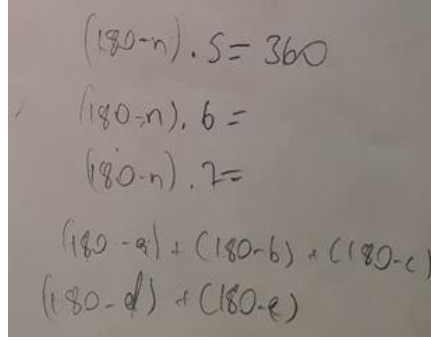 (180-n) . 5 = 360
(180-n) . 6 =
(180-n) . 7 =
(180 - a) + (180-b) + (180-c)
(180-d) + (180-e)